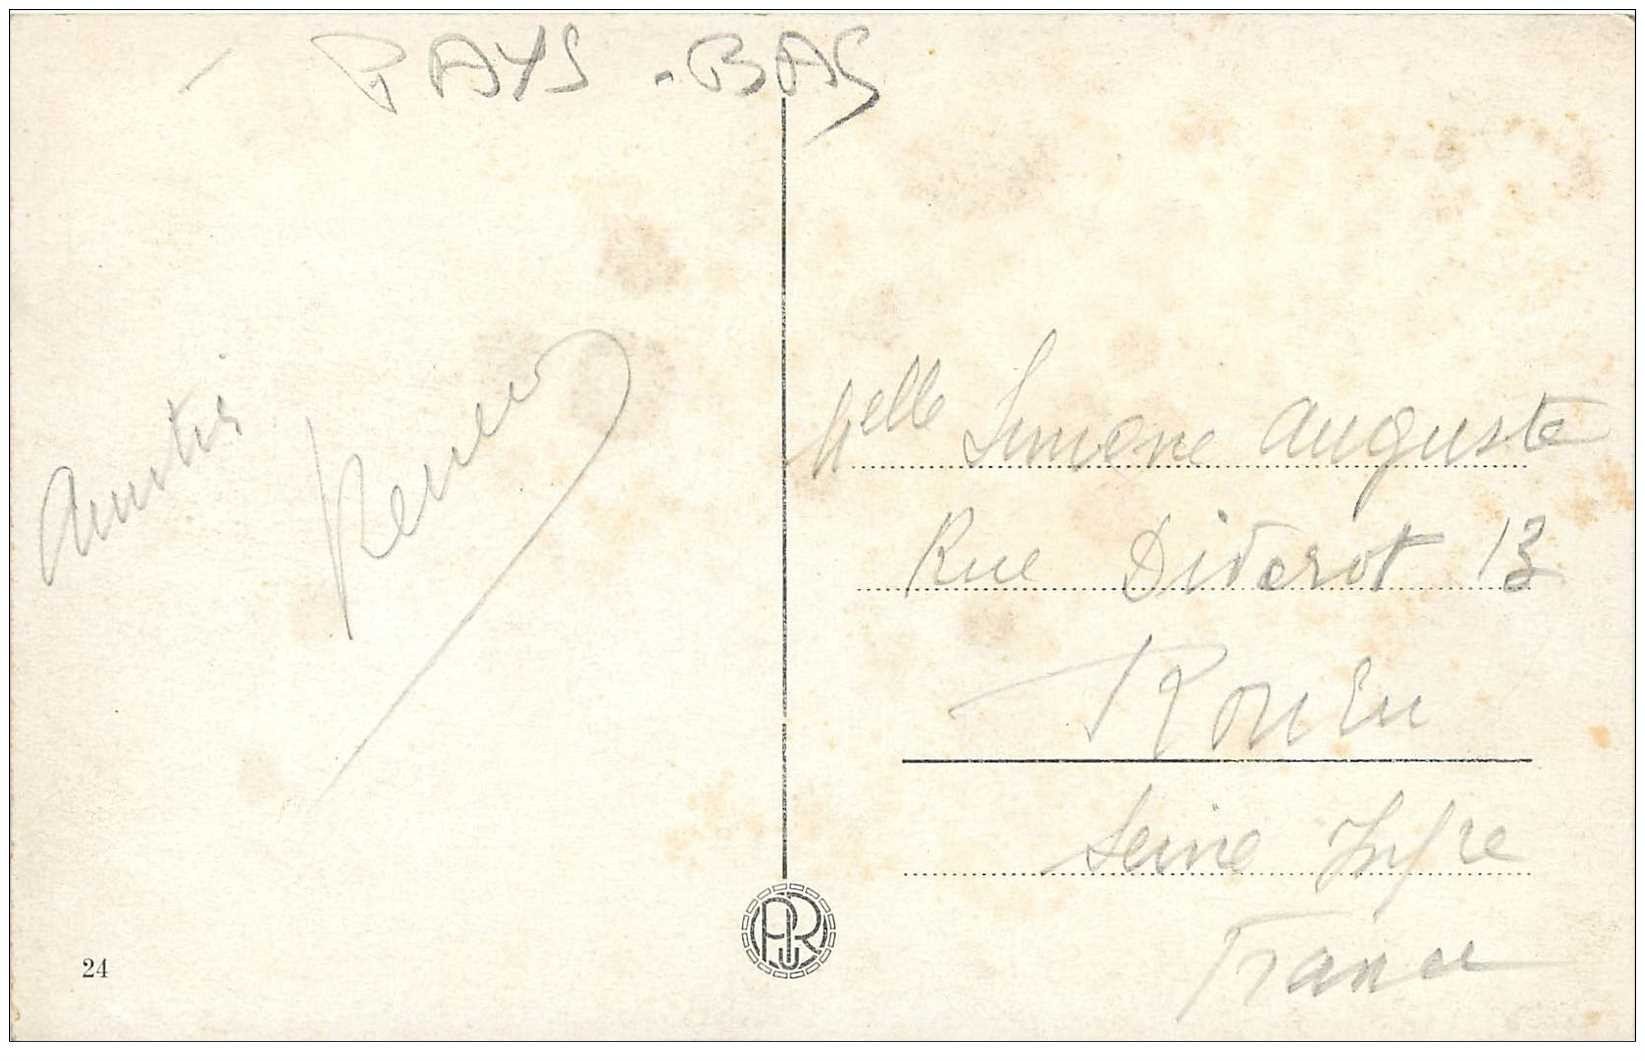 PAYS-BAS
Amitiés
Melle Simone Auguste
Rue Diderot 13
ROUEN
Seine Infre
France
24